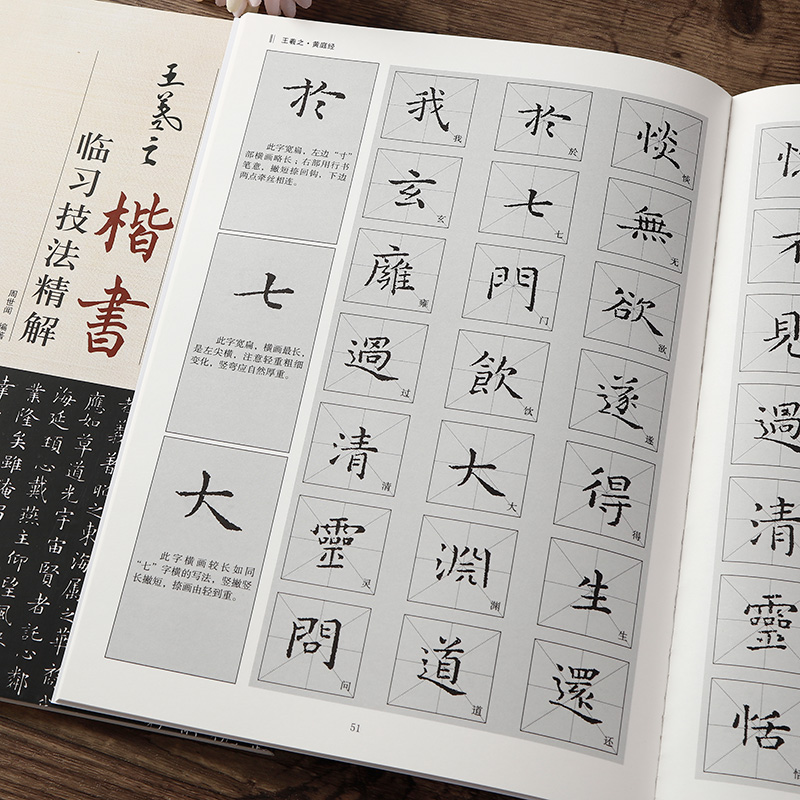 王羲之
楷書
临习技法精解
周世闻 编著
應如草道光宇宙賢者託心鄰
海延頸心戴燕主仰望風
業隆矣雖淹
王羲之·黄庭经
於
此字宽扁,左边“寸”
部横画略长;右部用行书
笔意,撇短捺回钩,下边
两点牵丝相连。
七
此字宽扁,横画最长,
是左尖横,注意轻重粗细
变化,竖弯应自然厚重。
大
此字横画较长如同
“七”字横的写法,竖撇竖
长撇短,捺画由轻到重。
我 於 惔
我 於 惔
玄 七 無
玄 七 无
廱 門 欲
雍 门 欲
過 飲 遂
过 饮 遂
清 大 得
清 大 得
靈 淵 生
灵 渊 生
問 道 還
问 道 还
51
不
見
過
清
靈
恬